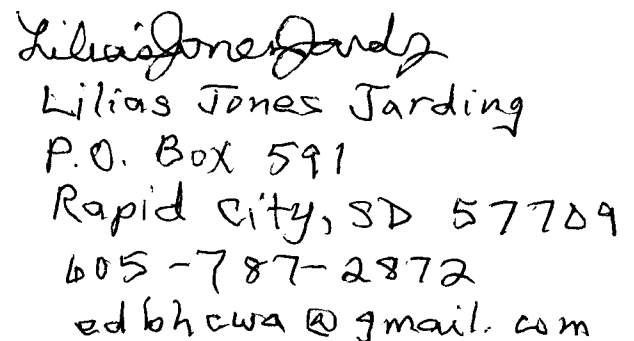 Lilias Jones Jarding
Lilias Jones Jarding
P.O. Box 591
Rapid City, SD 57709
605-787-2872
edbhcwa@gmail.com